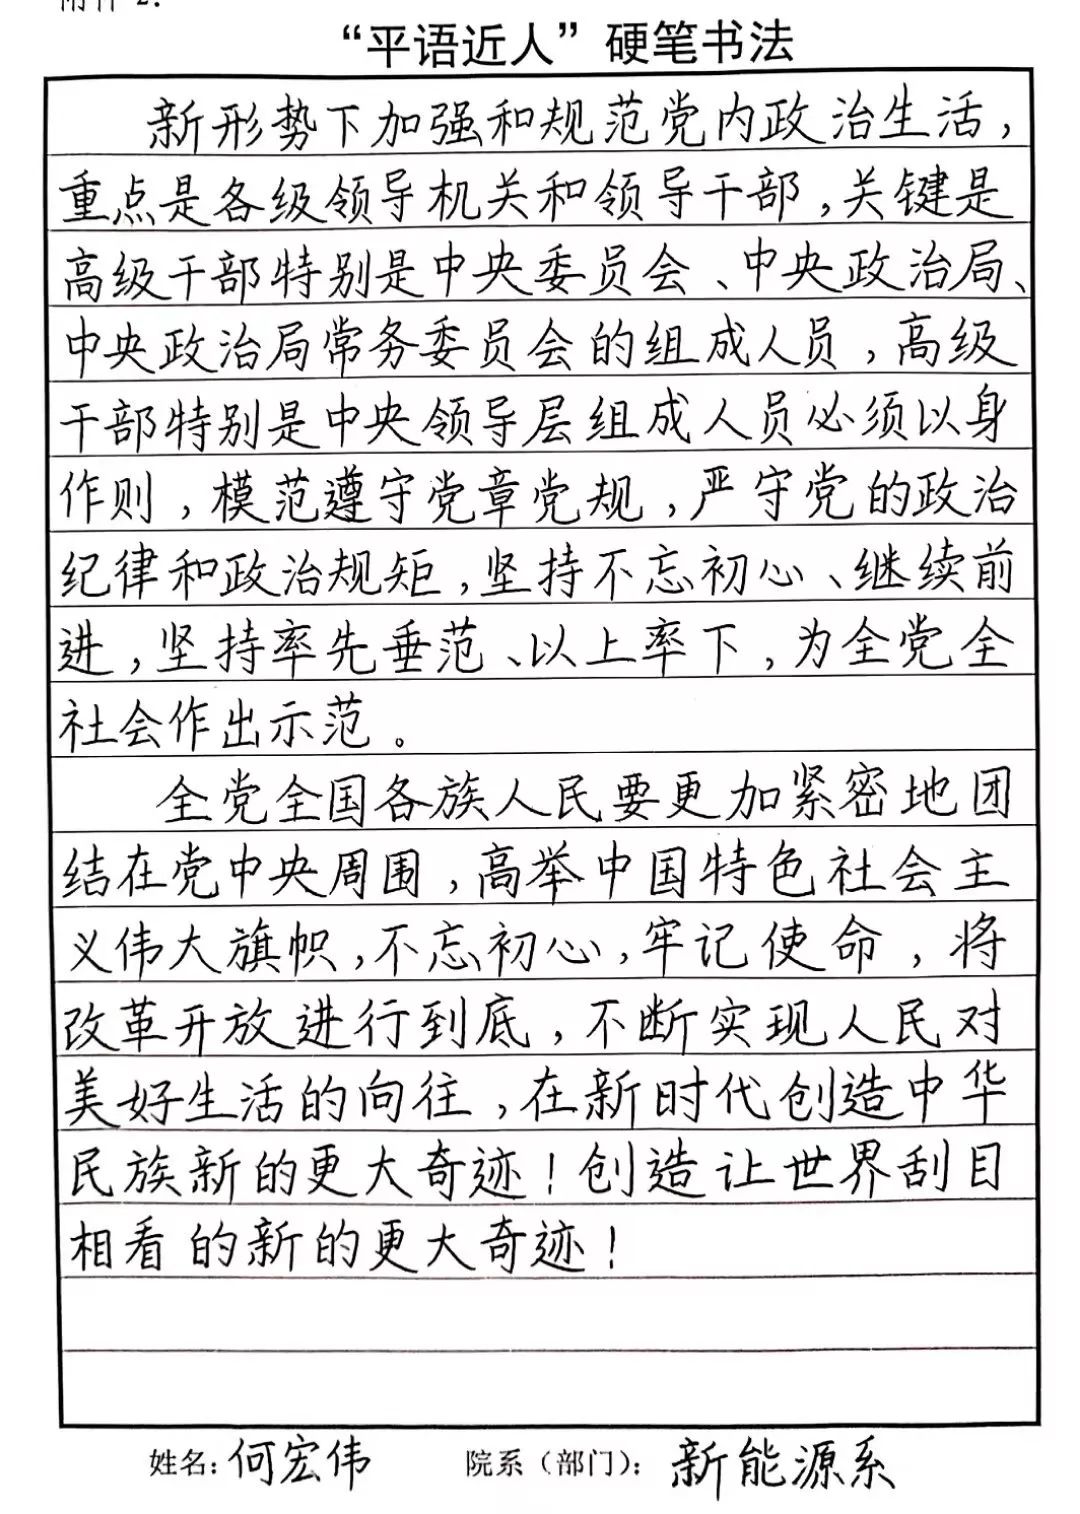 附件 2:
“平语近人”硬笔书法
新形势下加强和规范党内政治生活，
重点是各级领导机关和领导干部，关键是
高级干部特别是中央委员会、中央政治局、
中央政治局常务委员会的组成人员，高级
干部特别是中央领导层组成人员必须以身
作则，模范遵守党章党规，严守党的政治
纪律和政治规矩，坚持不忘初心、继续前
进，坚持率先垂范、以上率下，为全党全
社会作出示范。
全党全国各族人民要更加紧密地团
结在党中央周围，高举中国特色社会主
义伟大旗帜，不忘初心，牢记使命，将
改革开放进行到底，不断实现人民对
美好生活的向往，在新时代创造中华
民族新的更大奇迹！创造让世界刮目
相看的新的更大奇迹！
姓名：何宏伟 院系（部门）：新能源系